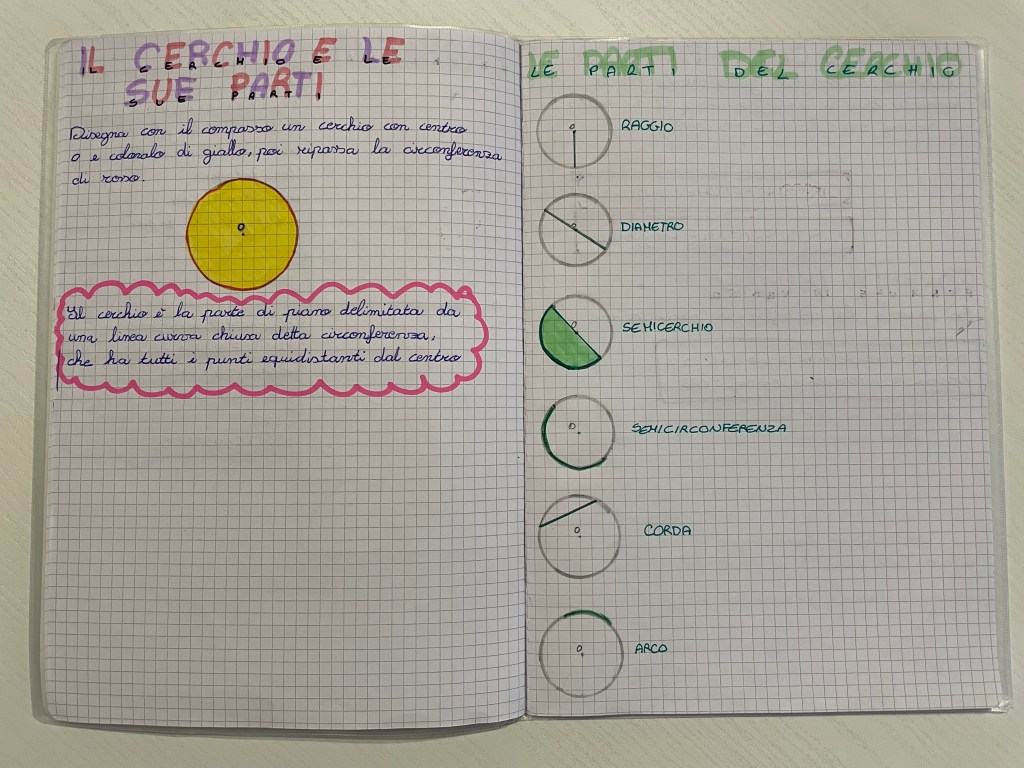 IL CERCHIO E LE
SUE PARTI
Disegna con il compasso un cerchio con centro
O e coloralo di giallo, poi ripassa la circonferenza
di rosso.
O
Il cerchio è la parte di piano delimitata da
una linea curva chiusa detta circonferenza,
che ha tutti i punti equidistanti dal centro
LE PARTI DEL CERCHIO
O
RAGGIO
O
DIAMETRO
O
SEMICERCHIO
O
SEMICIRCONFERENZA
O
CORDA
O
ARCO